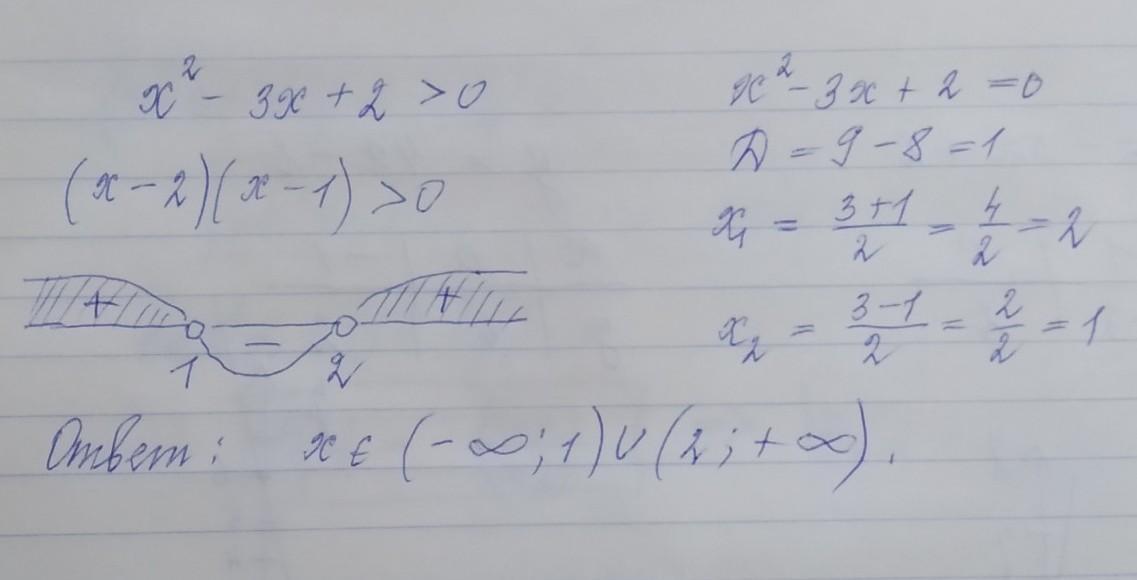 x² - 3x + 2 > 0
(x - 2)(x - 1) > 0
+ - +
1 2
x² - 3x + 2 = 0
Д = 9 - 8 = 1
x₁ = (3+1)/2 = 4/2 = 2
x₂ = (3-1)/2 = 2/2 = 1
Ответ: x ∈ (-∞; 1) ∪ (2; +∞).